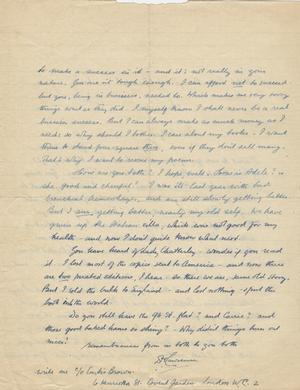 to make a success in it – and it's not really in your
nature. You are n't tough enough. I can afford not to succeed –
but you, being in business, needed to. Which makes me very sorry
things went as they did. I myself know I shall never be a real
business success. But I can always make as much money as I
need: so why should I bother. I care about my books. I want
them to stand four-square there, even if they don't sell many.
That's why I want to revise my poems.
How are you both? I hope, well. How is Adele? is
she good and cheerful? I was ill last year with bad
bronchial hæmorrhage, and am still slowly getting better.
But I am getting better, nearly my old self. We have
given up the Italian villa, which was not good for my
health – and now I don't quite know where next.
You have heard of Lady Chatterley – wonder if you read
it. I lost most of the copies sent to America – and now there
are two pirated editions, I hear. So there we are, same old story.
But I sold the bulk in England – and lost nothing – spilt the
bomb in the world.
Do you still have the 96 St. flat? and Carrie? and
those good baked hams so shiny? – Why did things turn out
mean!
remembrances from us both to you both
D H Lawrence
write me c/o Curtis Brown.
6 Henrietta St. Covent Garden London W.C. 2